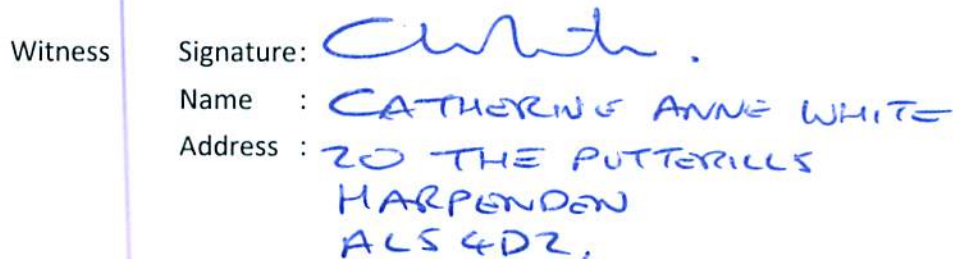 Witness Signature:
Name : CATHERINE ANNE WHITE
Address : 20 THE PUTTERILLS
HARPENDEN
AL5 4DZ.